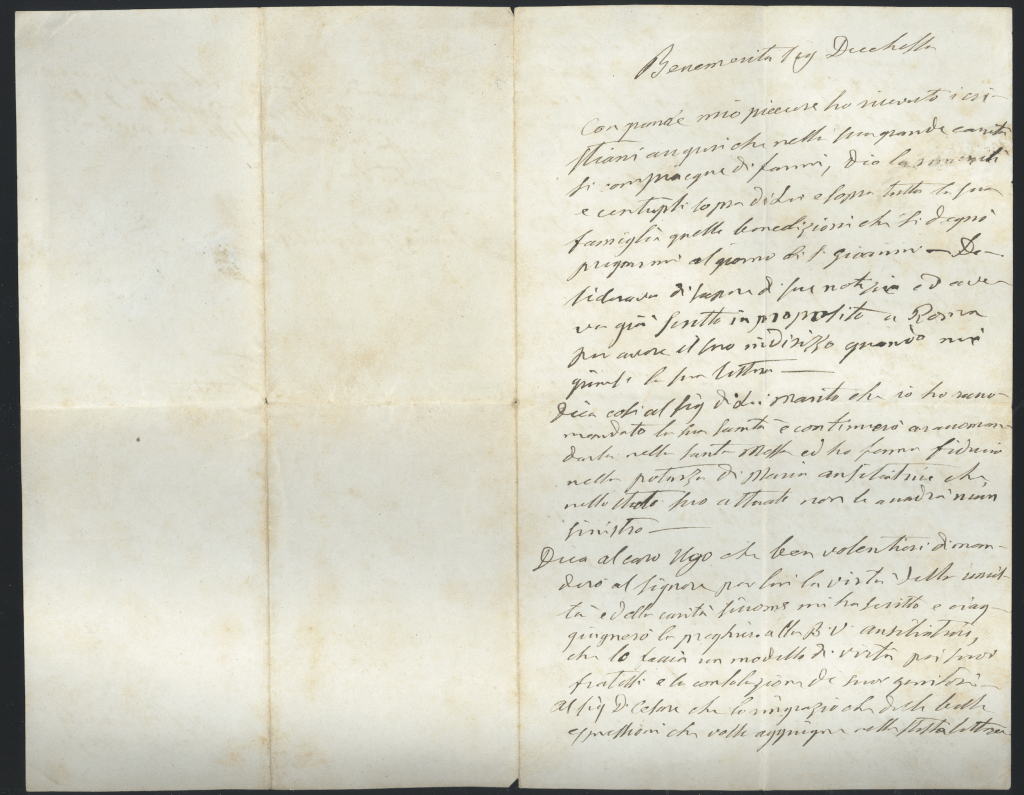 Benemerita Sig Duchessa
Con grande mio piacere ho ricevuto i cri-
stiani auguri che nella sua grande carità
si compiacque di farmi, Dio la rimeriti
e centupli sopra di Lei e sopra tutta la sua
famiglia quelle benedizioni che si degnò
pregarmi al giorno di S. Giovanni — De-
siderava di sapere di sue notizie ed ave-
va già scritto in proposito a Roma
per avere il suo indirizzo quando mi
giunse la sua lettera —
Dica così al Sig di Lei Marito che io ho racco-
mandato la sua sanità e continuerò a raccoman-
darla nella santa Messa ed ho ferma fiducia
nella potenza di Maria ausiliatrice che
nello stato suo attuale non le accadrà niun
sinistro —
Dica al caro Ugo che ben volentieri diman-
derò al Signore per lui la virtù della umil-
tà e della carità siccome mi ha scritto e ci ag-
giugnerò la preghiera alla B. V. ausiliatrice,
che lo faccia un modello di virtù pei suoi
fratelli e la consolazione de' suoi genitori —
Al Sig D. Cesare che lo ringrazio che delle belle
espressioni che volle aggiugnere nella stessa lettera